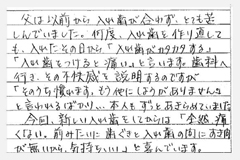 父は以前から入れ歯が合わず、とても苦
しんでいました。何度、入れ歯を作り直して
も、入れたその日から「入れ歯がカタカタする」
「入れ歯をつけると痛い」と言います。歯科へ
行き、その不快感を説明するのですが
「そのうち慣れます。そう他にほうがありません」
と言われるばかり…、本人もずっとあきらめていました。
今回、新しい入れ歯をしてからは「全然、痛
くない。前みたいに歯ぐきと入れ歯の間にすき間
が無いから、気持ちいい」と喜んでいます。